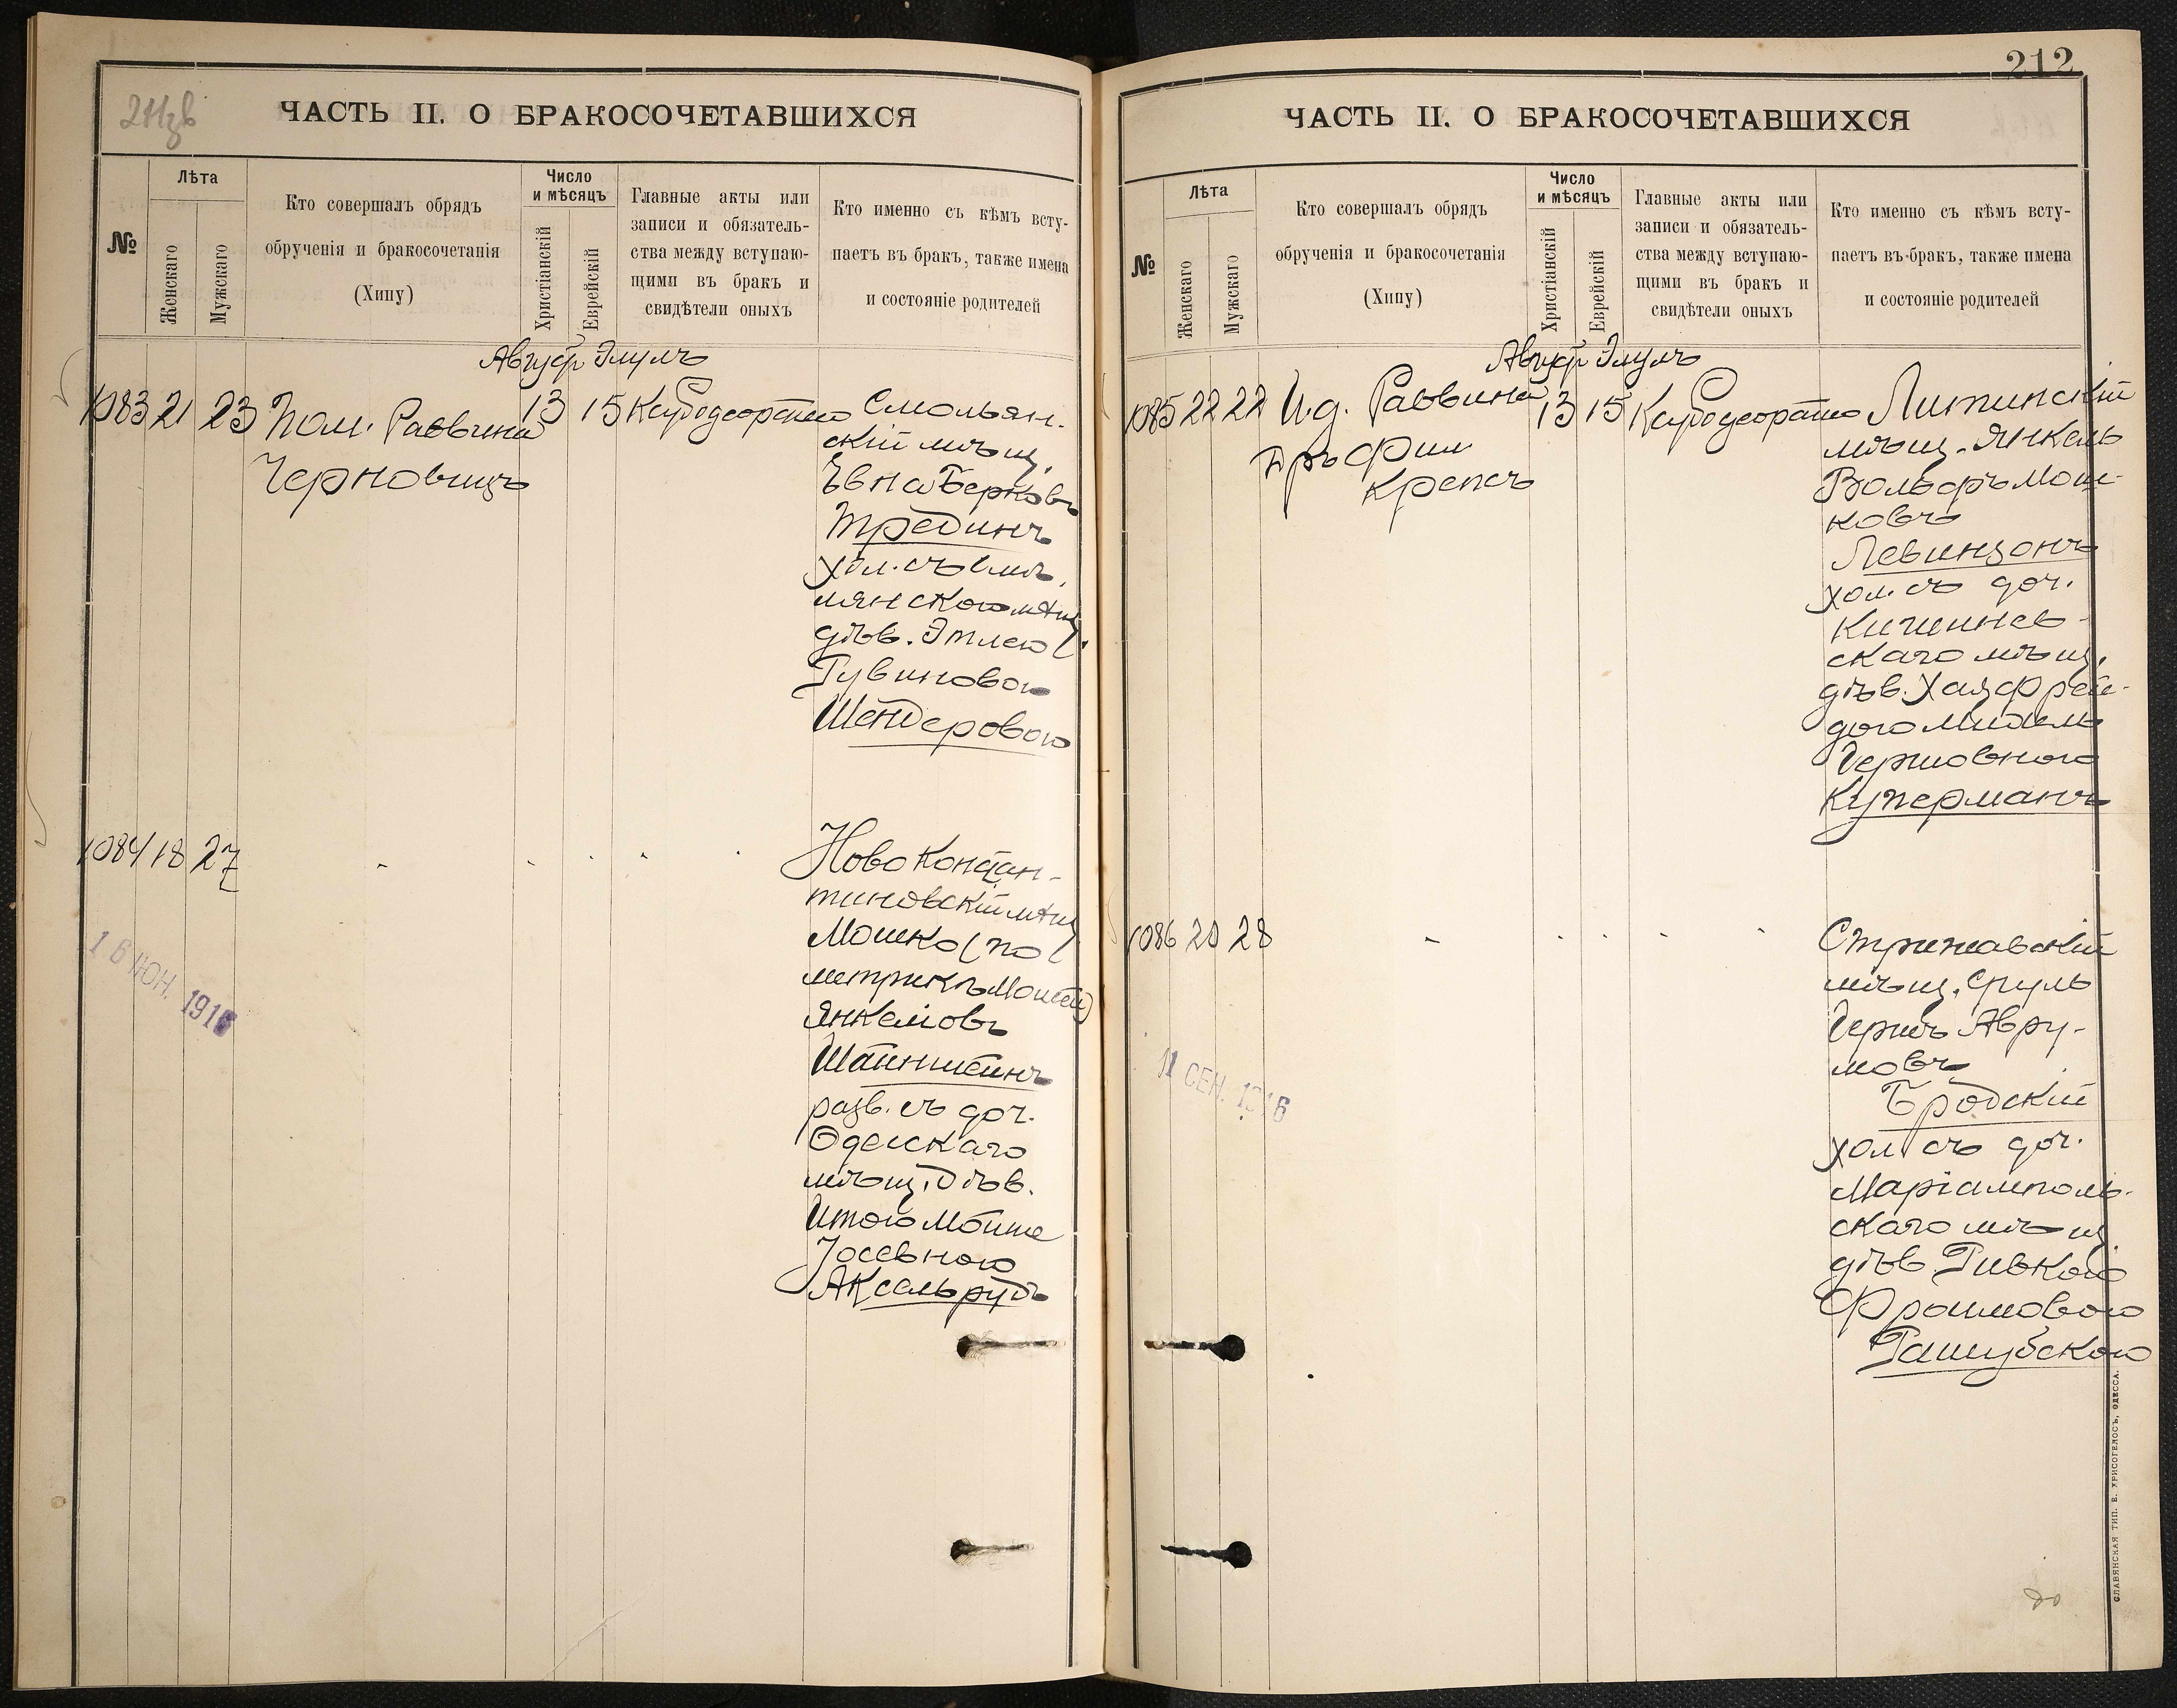 ЧАСТЬ II. О БРАКОСОЧЕТАВШИХСЯ
№
Лѣта
Женскаго
Мужскаго
Кто совершалъ обрядъ
обрученія и бракосочетанія
(Хипу)
Число
и мѣсяцъ
Христіанскій
Еврейскій
Главные акты или
записи и обязатель-
ства между вступаю-
щими въ бракъ и
свидѣтели оныхъ
Кто именно съ кѣмъ всту-
паетъ въ бракъ, также имена
и состояніе родителей
Август Элулъ
1083 21 23 Пом. Раввина 13 15
Черновицъ
Смольян-
скій мѣщ.
Берковъ
Трединъ
хол. съ
дѣв. Этлею
Рувиновою
Шендеровою
1084 18 27
Ново Констан-
тиновскій мѣщ.
Мошко (по
метрикѣ Мошей)
Янкелювъ
Шайнштейнъ
разв. съ доч.
Одесскаго
мѣщ. дѣв.
Итою
Іосевною
Аксельрудъ
16 ІЮН. 1916
212
ЧАСТЬ II. О БРАКОСОЧЕТАВШИХСЯ
№
Лѣта
Женскаго
Мужскаго
Кто совершалъ обрядъ
обрученія и бракосочетанія
(Хипу)
Число
и мѣсяцъ
Христіанскій
Еврейскій
Главные акты или
записи и обязатель-
ства между вступаю-
щими въ бракъ и
свидѣтели оныхъ
Кто именно съ кѣмъ всту-
паетъ въ бракъ, также имена
и состояніе родителей
Август Элулъ
1085 22 22 И.д. Раввина 13 15
Крепсъ
Литинскій
мѣщ. Янкель
Вольфъ Мош-
ковъ
Левинзонъ
хол. съ доч.
Кишинев-
скаго мѣщ.
дѣв. Хая Фрей-
дою
Гершовною
Куперманъ
1086 20 28
Стрижавскій
мѣщ. Сруль
Гершъ Авру-
мовъ
Бродскій
хол. съ доч.
Маріамполь-
скаго мѣщ.
дѣв. Ривкою
Фроимовою
Рашубскою
11 СЕН. 1916
СЛАВЯНСКАЯ ТИП. Е. ХРИСОГЕЛОСЪ, ОДЕССА.